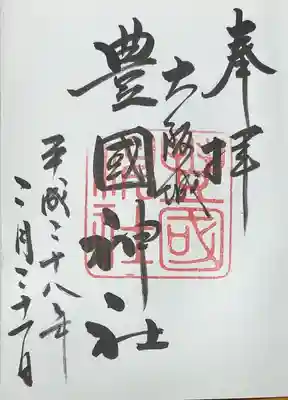 奉拝
大阪城
豊國神社
平成二十八年
二月二十一日
豊國
神社